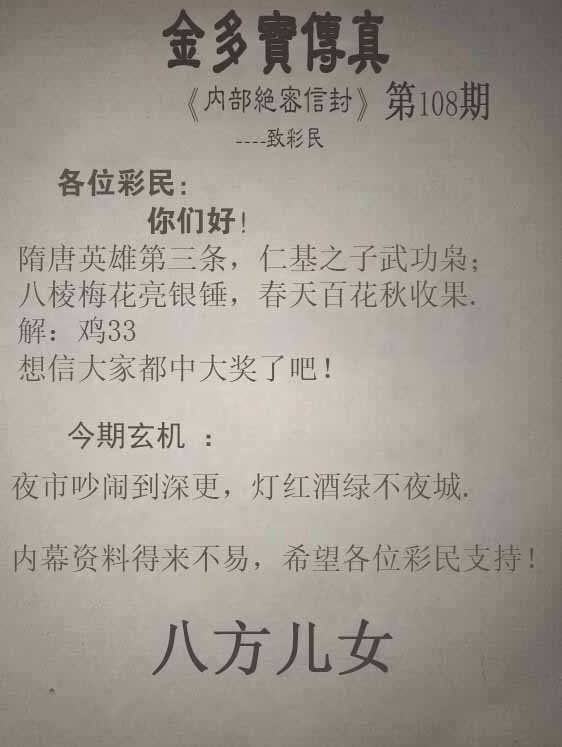 金多寶傳真
《内部絕密信封》第108期
----致彩民
各位彩民:
你们好!
隋唐英雄第三条，仁基之子武功枭；
八棱梅花亮银锤，春天百花秋收果.
解：鸡33
想信大家都中大奖了吧！
今期玄机 ：
夜市吵闹到深更，灯红酒绿不夜城.
内幕资料得来不易，希望各位彩民支持！
八方儿女